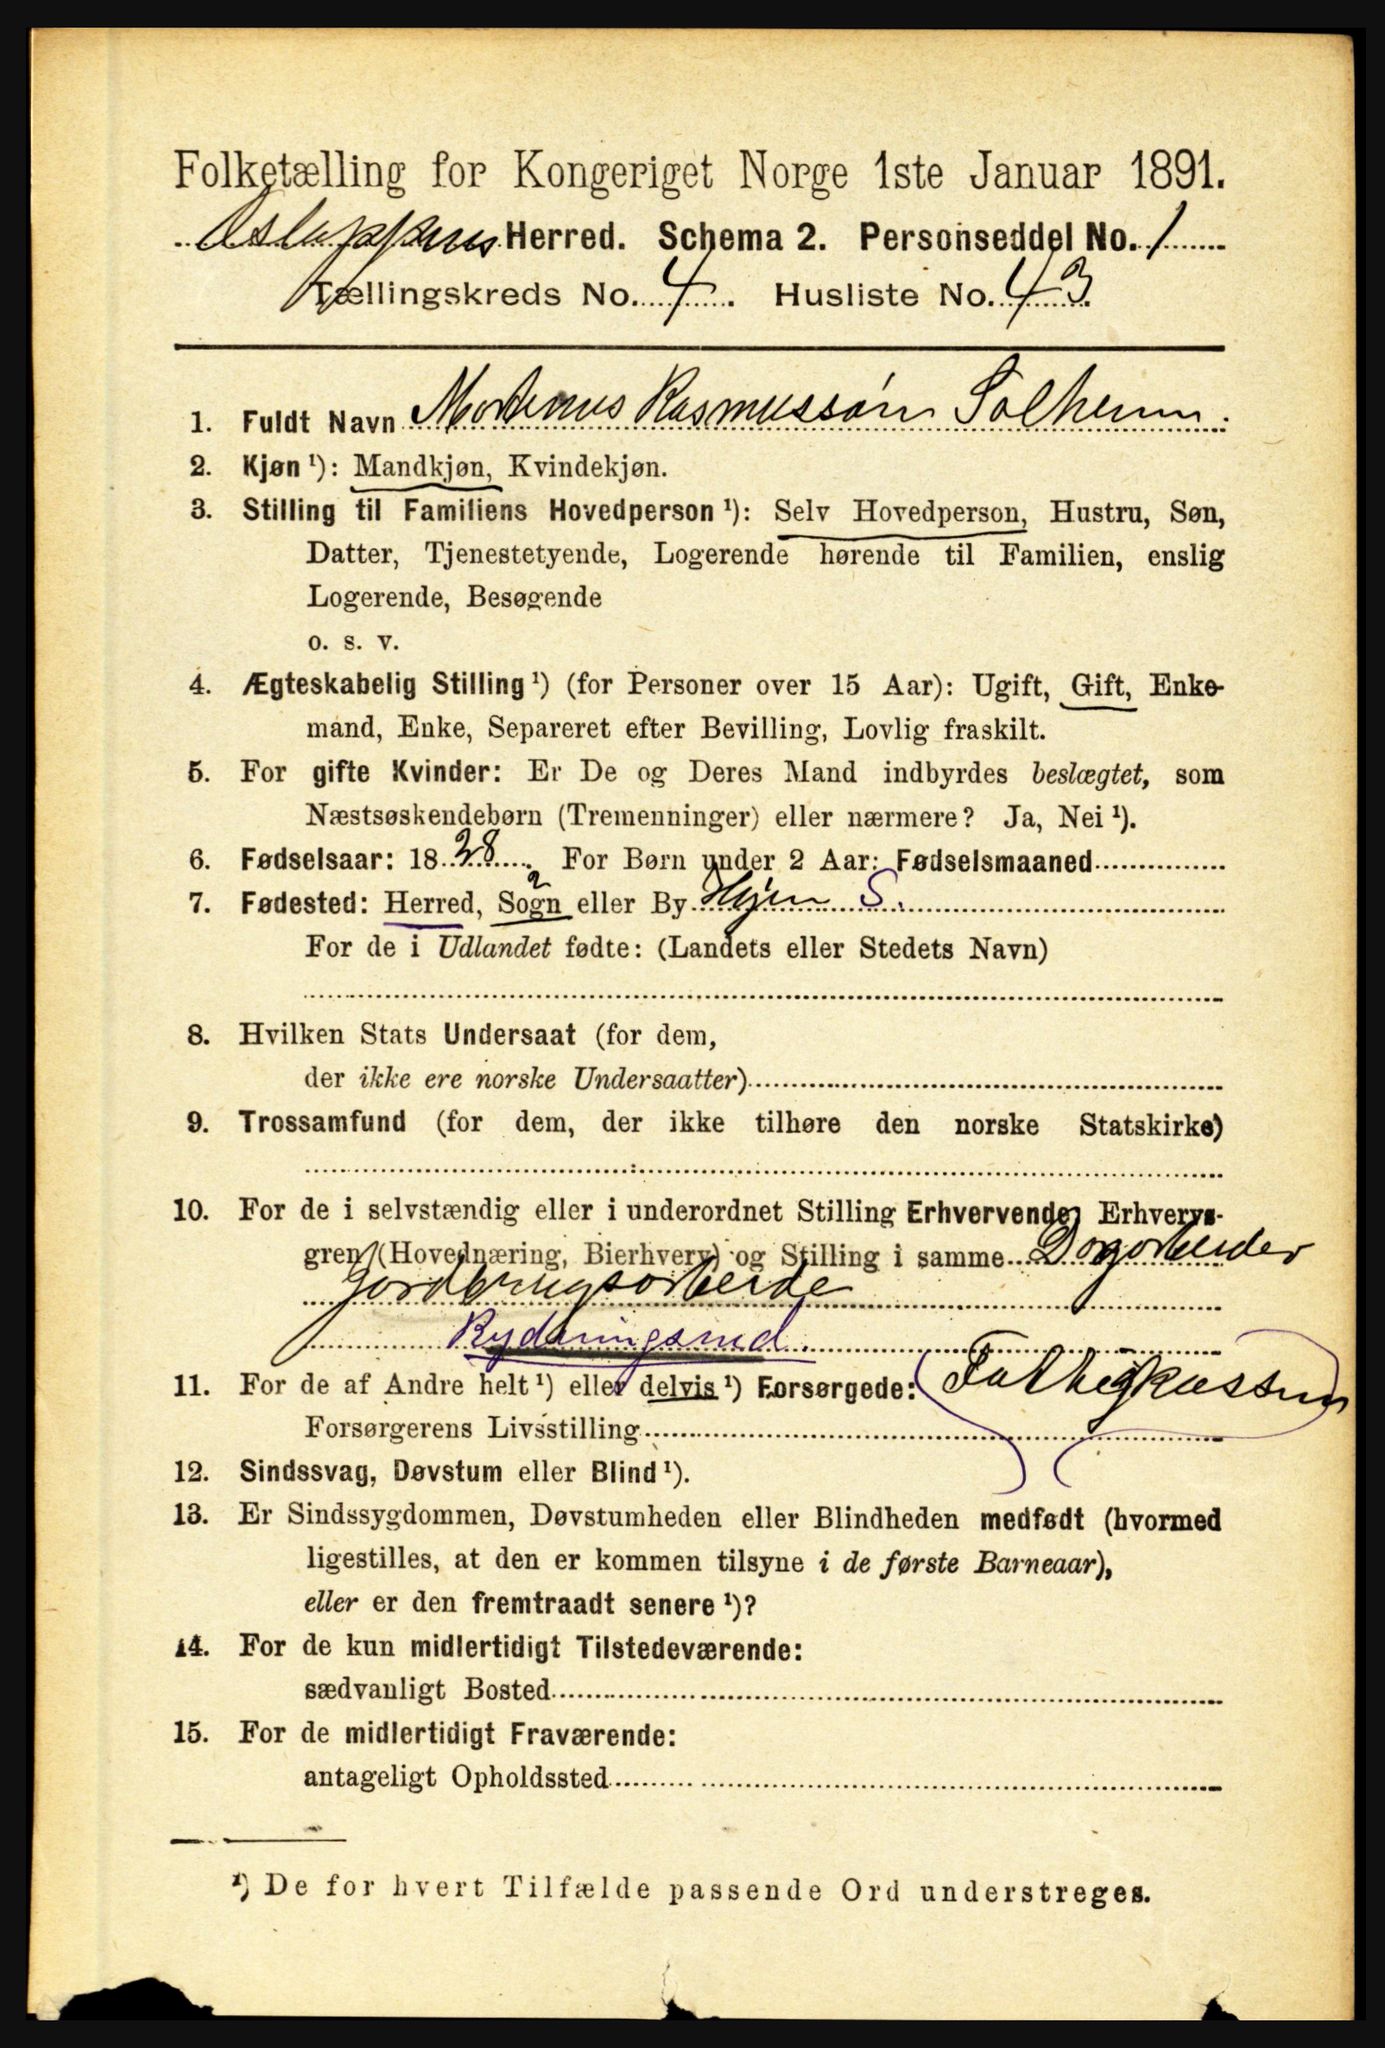 Folketælling for Kongeriget Norge 1ste Januar 1891.
Herred. Schema 2. Personseddel No. 1
Tællingskreds No. 4. Husliste No. 43
1. Fuldt Navn Mortinus Rasmussøn Solheim.
2. Kjøn ¹): Mandkjøn, Kvindekjøn.
3. Stilling til Familiens Hovedperson ¹): Selv Hovedperson, Hustru, Søn,
Datter, Tjenestetyende, Logerende hørende til Familien, enslig
Logerende, Besøgende
o. s. v.
4. Ægteskabelig Stilling ¹) (for Personer over 15 Aar): Ugift, Gift, Enke-
mand, Enke, Separeret efter Bevilling, Lovlig fraskilt.
5. For gifte Kvinder: Er De og Deres Mand indbyrdes beslægtet, som
Næstsøskendebørn (Tremenninger) eller nærmere? Ja, Nei ¹).
6. Fødselsaar: 1828. For Børn under 2 Aar: Fødselsmaaned
7. Fødested: Herred, Sogn eller By Hyen S.
For de i Udlandet fødte: (Landets eller Stedets Navn)
8. Hvilken Stats Undersaat (for dem,
der ikke ere norske Undersaatter)
9. Trossamfund (for dem, der ikke tilhøre den norske Statskirke)
10. For de i selvstændig eller i underordnet Stilling Erhvervende: Erhvervs-
gren (Hovednæring, Bierhverv) og Stilling i samme Dagarbeider
Jordbrugsarbeide
Rydningsmd.
11. For de af Andre helt ¹) eller delvis ¹) Forsørgede: Fattigkassen
Forsørgerens Livsstilling
12. Sindssvag, Døvstum eller Blind ¹).
13. Er Sindssygdommen, Døvstumheden eller Blindheden medfødt (hvormed
ligestilles, at den er kommen tilsyne i de første Barneaar),
eller er den fremtraadt senere ¹)?
14. For de kun midlertidigt Tilstedeværende:
sædvanligt Bosted
15. For de midlertidigt Fraværende:
antageligt Opholdssted
¹) De for hvert Tilfælde passende Ord understreges.